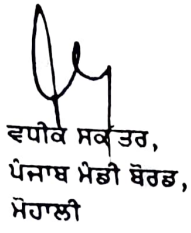 ਵਧੀਕ ਸਕੱਤਰ,
ਪੰਜਾਬ ਮੰਡੀ ਬੋਰਡ,
ਮੋਹਾਲੀ